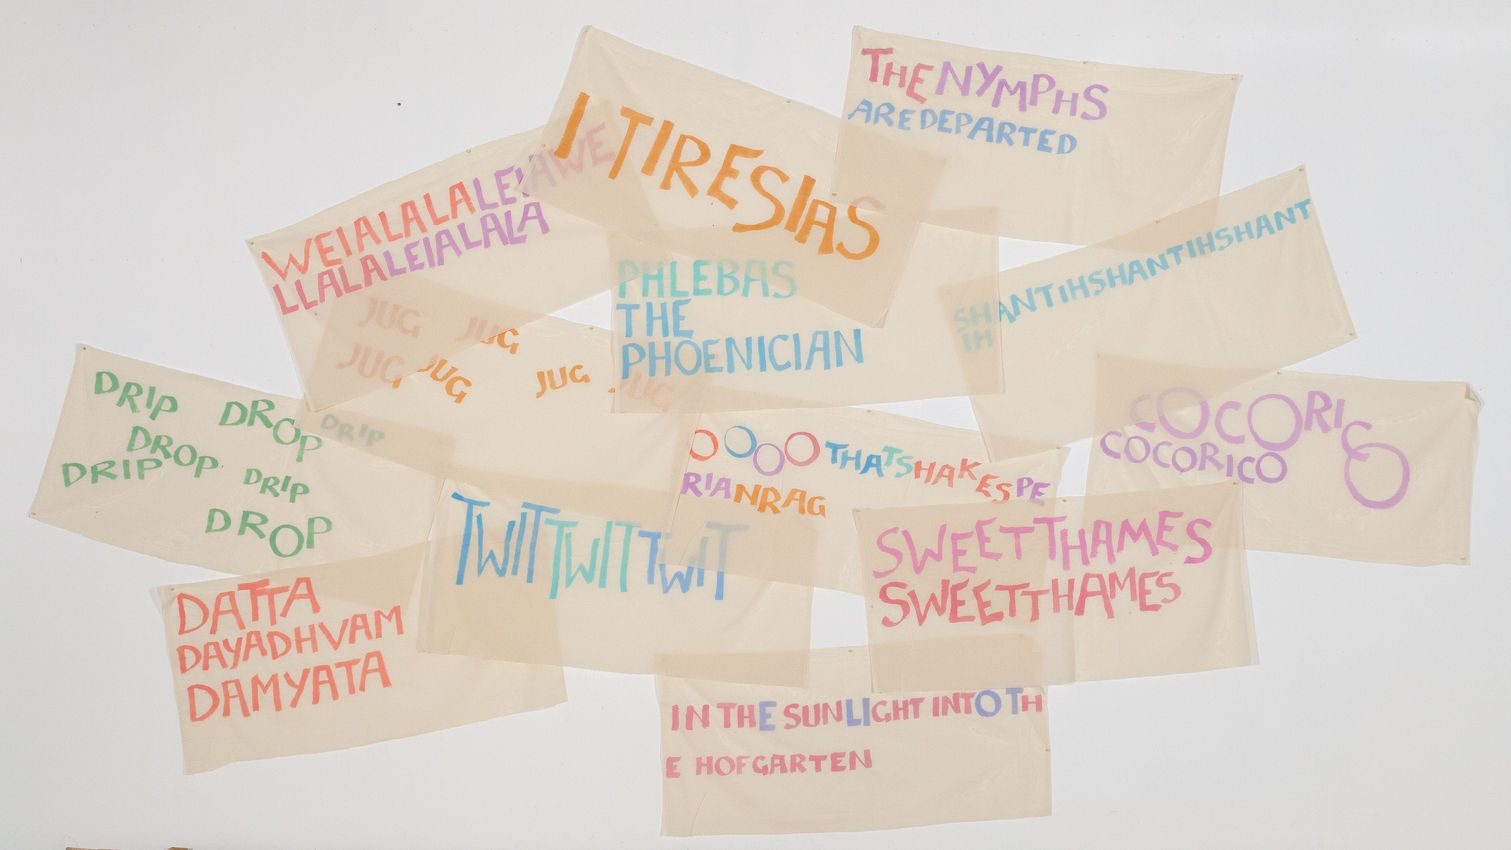 THE NYMPHS
ARE DEPARTED
I TIRESIAS
WEIALALALEIAWE
LLALALEIALALA
SHANTIHSHANTIHSHANT
IH
PHLEBAS
THE
PHOENICIAN
JUG JUG
JUG JUG JUG JUG
DRIP DROP DRIP
DROP
DRIP DRIP
DROP
COCORICO
COCORICO
O O O O THATSHAKESPE
RIANRAG
TWIT TWIT TWIT
SWEET THAMES
SWEET THAMES
DATTA
DAYADHVAM
DAMYATA
IN THE SUNLIGHT INTO TH
E HOFGARTEN